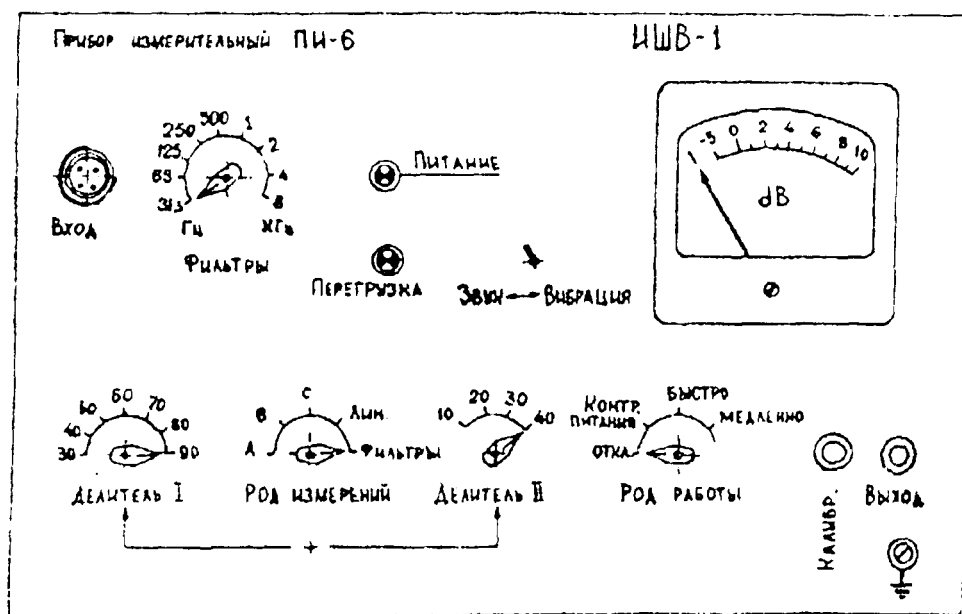 Прибор измерительный ПИ-6
ИШВ-1
31,5 63 125 250 500 1 2 4 8
Гц кГц
Фильтры
Вход
Питание
Перегрузка
Звук Вибрация
-5 0 2 4 6 8 10
dB
30 40 50 60 70 80 90
Делитель I
А В С Лин. Фильтры
Род измерений
10 20 30 40
Делитель II
Откл Контр. питания Быстро Медленно
Род работы
Калибр.
Выход